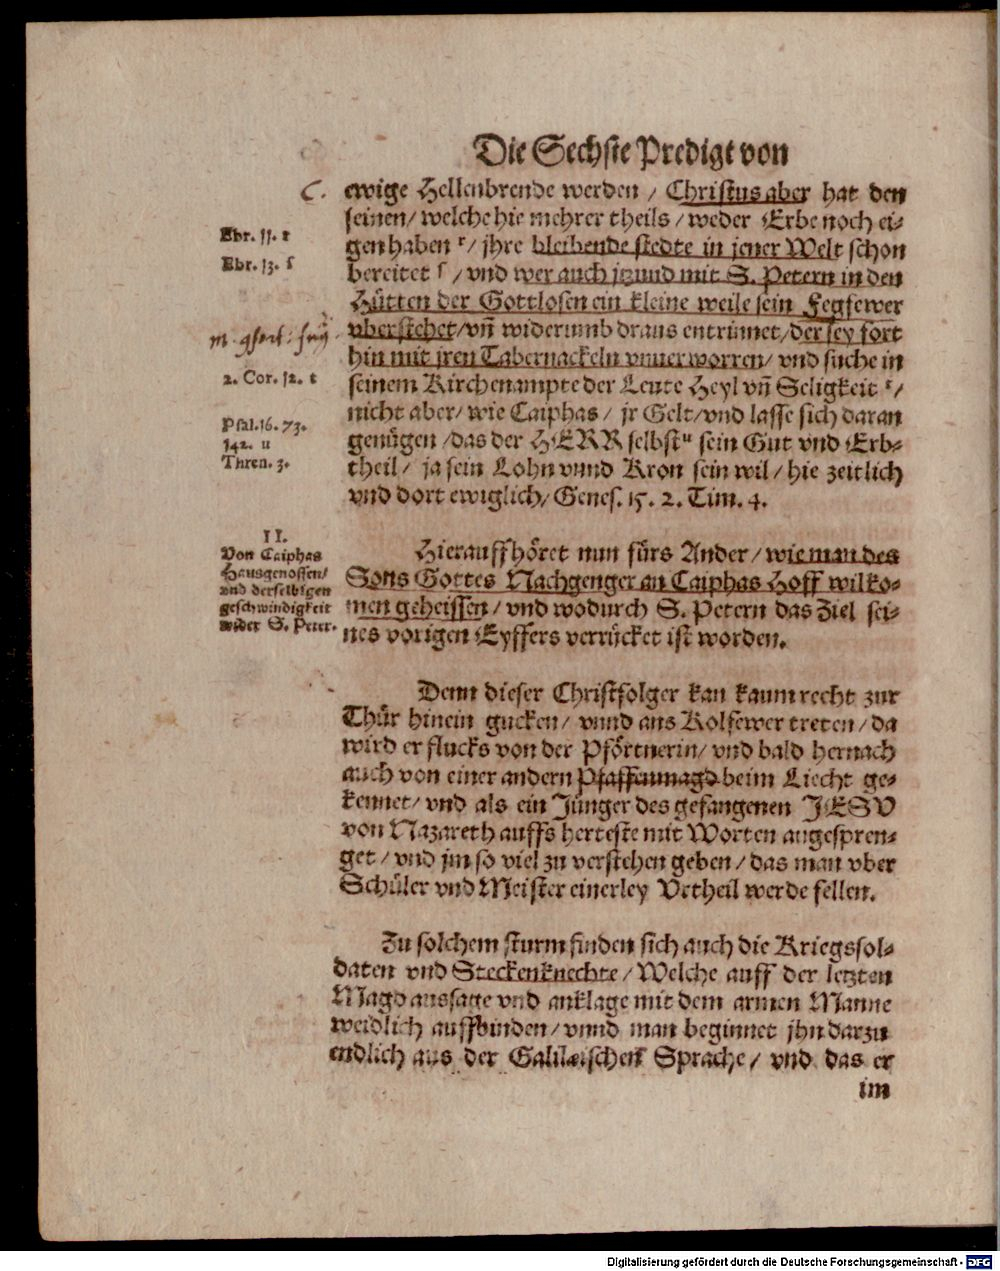 Die Sechste Predigt von
C.
ewige Hellenbrende werden / Christus aber hat den
seinen / welche hie mehrer theils / weder Erbe noch ei-
gen haben r / jhre bleibende stedte in jener Welt schon
bereitet s / vnd wer auch jtzund mit S. Petern in den
Hütten der Gottlosen ein kleine weile sein Fegfewer
vberstehet / vñ widerumb draus entrinnet / der sey fort
hin mit jren Tabernackeln vnuerworren / vnd suche in
seinem Kirchenampte der Leute Heyl vñ Seligkeit t /
nicht aber / wie Caiphas / jr Gelt / vnd lasse sich daran
genügen / das der HERR selbst u sein Gut vnd Erb-
theil / ja sein Lohn vnnd Kron sein wil / hie zeitlich
vnd dort ewiglich / Genes. 15. 2. Tim. 4.
Ebr. 11. r
Ebr. 13. s
2. Cor. 12. t
Psal. 16. 73.
142. u
Thren. 3.
II.
Von Caiphas
Hausgenossen /
vnd derselbigen
geschwindigkeit
wider S. Peter.
Hierauff höret nun fürs Ander / wie man des
Sons Gottes Nachgenger an Caiphas Hoff wilko-
men geheissen / vnd wodurch S. Petern das Ziel sei-
nes vorigen Eyffers verrücket ist worden.
Denn dieser Christfolger kan kaum recht zur
Thür hinein gucken / vnnd ans Kolfewer treten / da
wird er flucks von der Pförtnerin / vnd bald hernach
auch von einer andern Pfaffenmagd beim Liecht ge-
kennet / vnd als ein Jünger des gefangenen JESV
von Nazareth auffs herteste mit Worten angespren-
get / vnd jm so viel zu verstehen geben / das man vber
Schüler vnd Meister einerley Vrtheil werde fellen.
Zu solchem sturm finden sich auch die Kriegssol-
daten vnd Steckenknechte / Welche auff der letzten
Magd aussage vnd anklage mit dem armen Manne
weidlich auffbinden / vnnd man beginnet jhn darzu
endlich aus der Galilæischen Sprache / vnd das er
im
Digitalisierung gefördert durch die Deutsche Forschungsgemeinschaft - DFG